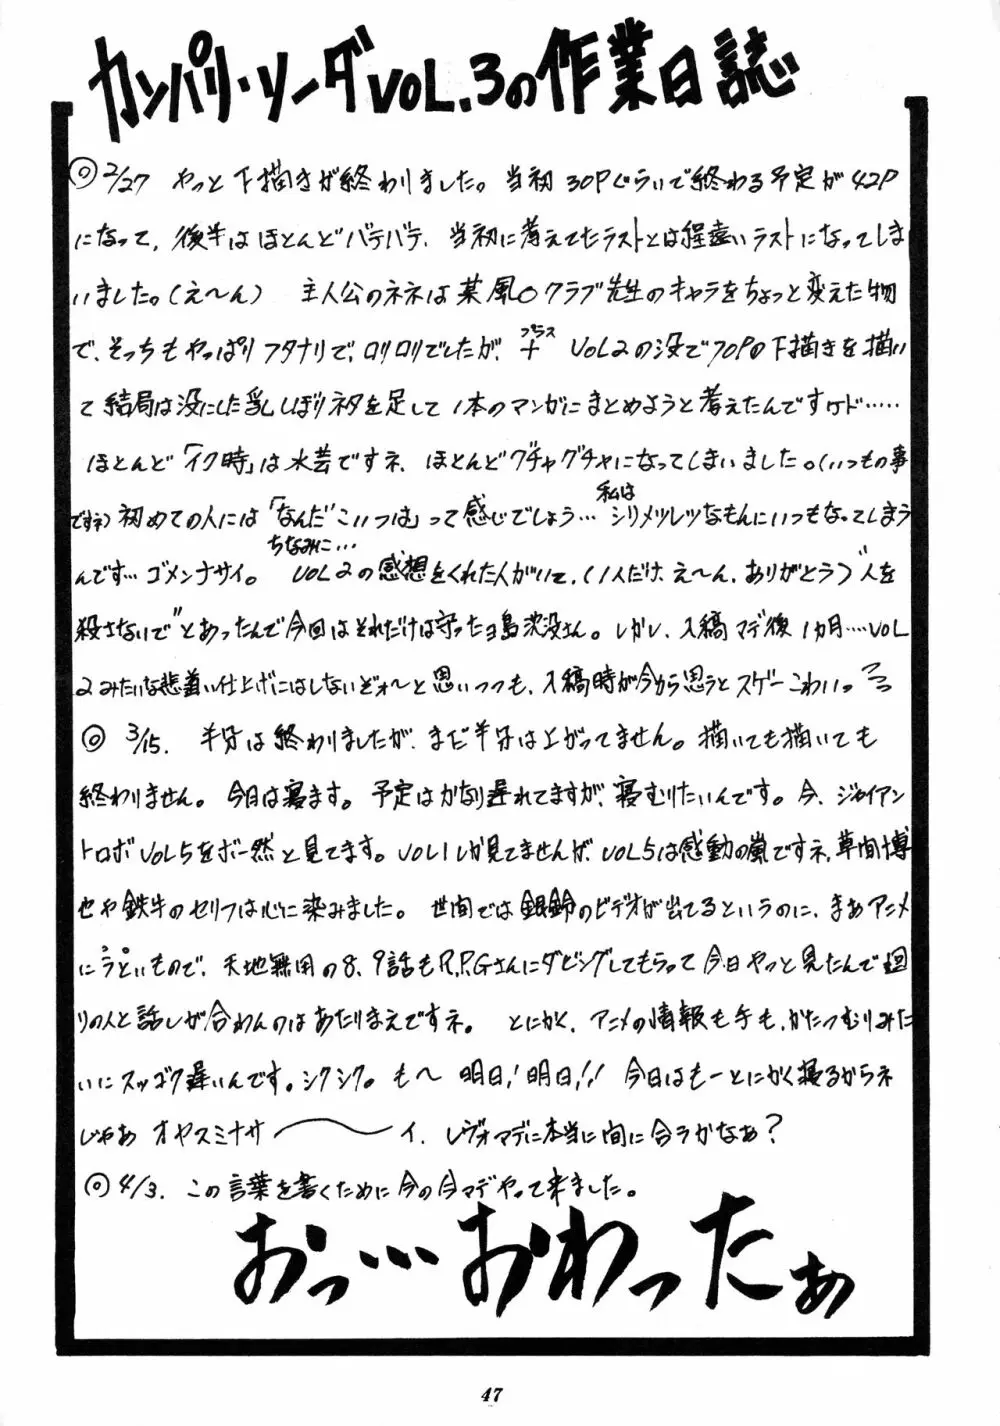 カンパリ・ソーダVOL.3の作業日誌
◎2/27 やっと下描きが終わりました。当初30Pぐらいで終わる予定が42P
になって、後半はほとんどバテバテ、当初に考えてたラストとは程遠いラストになってしま
いました。(え〜ん) 主人公のネネは某風○クラブ先生のキャラをちょっと変えた物
で、そっちもやっぱりフタナリで、ロリロリでしたが、
プラス
+ VOL2の没で70Pの下描きを描い
て結局は没にした乳しぼりネタを足して1本のマンガにまとめようと考えたんですケド……
ほとんど「イク時」は水芸ですネ、ほとんどグチャグチャになってしまいました。(いつもの事
ですネ)初めての人には「なんだこいつは」って感じでしょう…
私は
シリメツレツなもんにいつもなってしまう
んです…ゴメンナサイ。
ちなみに…
VOL2の感想をくれた人がいて、(1人だけ、え〜ん、ありがとう)"人を
殺さないで"とあったんで今回はそれだけは守ったヨ島沈没さん。しかし、入稿マデ後1カ月……VOL
2みたいな悲着い仕上げにはしないぞォ〜と思いつつも、入稿時が今から思うとスゲーこわいっ
◎3/15. 半分は終わりましたが、まだ半分は上がってません。描いても描いても
終わりません。今日は寝ます。予定はかなり遅れてますが、寝むりたいんです。今、ジャイアン
トロボVOL5をボー然と見てます。VOL1しか見てませんが、VOL5は感動の嵐ですネ、草間博
士や鉄牛のセリフは心に染みました。世間では銀鈴のビデオが出てるというのに、まあアニメ
にうといもので、天地無用の8、9話もR.P.Gさんにダビングしてもらって今日やっと見たんで廻
りの人と話しが合わんのはあたりまえですネ。とにかく、アニメの情報も手も、かたつむりみた
いにスッゴク遅いんです。シクシク。も〜明日!明日!! 今日はもーとにかく寝るからネ
じゃあ オヤスミナサ〜〜イ、レヴォマデに本当に間に合うかなぁ?
◎4/3. この言葉を書くために今の今マデやって来ました。
おっ…おわったぁ
47